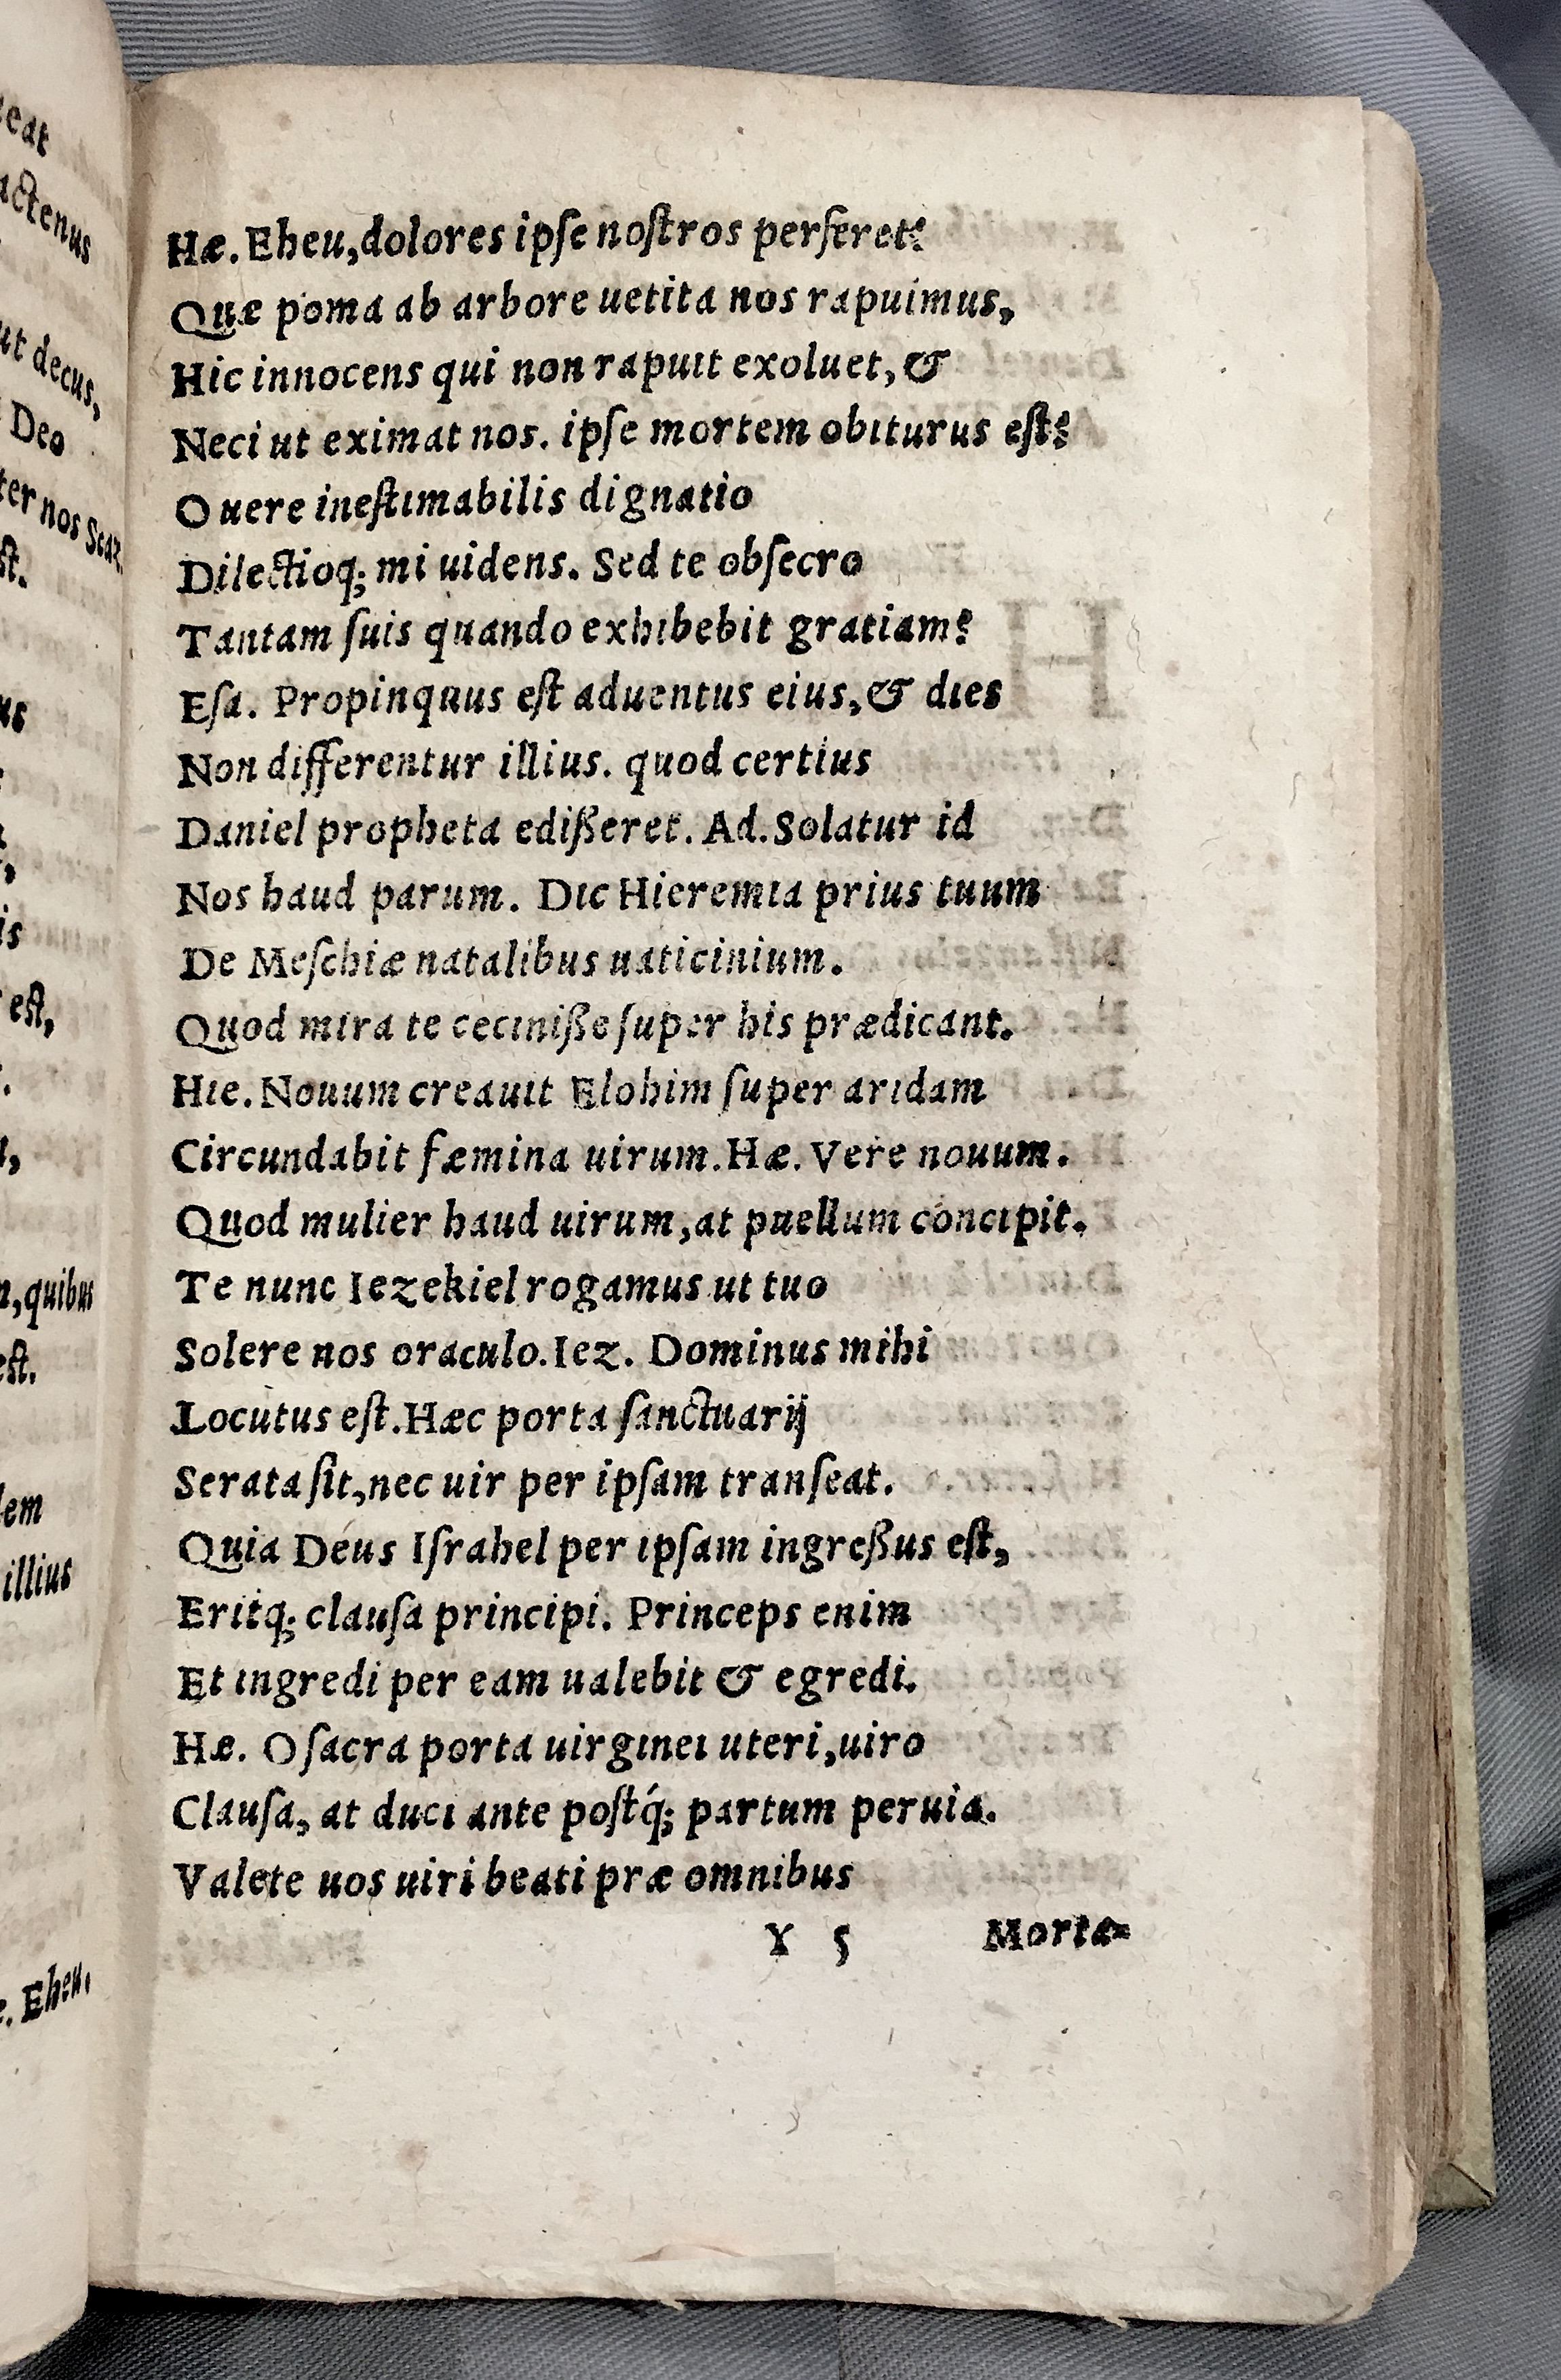 Hæ. Eheu, dolores ipſe noſtros perferet?
Quæ poma ab arbore uetita nos rapuimus,
Hic innocens qui non rapuit exoluet, &
Neci ut eximat nos. ipſe mortem obiturus eſt?
O uere ineſtimabilis dignatio
Dilectioq; mi uidens. Sed te obſecro
Tantam ſuis quando exhibebit gratiam?
Eſa. Propinquus eſt aduentus eius, & dies
Non differentur illius. quod certius
Daniel propheta edißeret. Ad. Solatur id
Nos haud parum. Dic Hieremia prius tuum
De Meſchiæ natalibus uaticinium.
Quod mira te ceciniße ſuper his prædicant.
Hie. Nouum creauit Elohim ſuper aridam
Circundabit fæmina uirum. Hæ. Vere nouum.
Quod mulier haud uirum, at puellum concipit.
Te nunc Iezekiel rogamus ut tuo
Solere nos oraculo. Iez. Dominus mihi
Locutus eſt. Hæc porta ſanctuarij
Serata ſit, nec uir per ipſam tranſeat.
Quia Deus Iſrahel per ipſam ingreßus eſt,
Eritq; clauſa principi. Princeps enim
Et ingredi per eam ualebit & egredi.
Hæ. O ſacra porta uirginei uteri, uiro
Clauſa, at duci ante poſtq́; partum peruia.
Valete uos uiri beati præ omnibus
Y 5 Morta-
eat
actenus
ut decus,
Deo
ter nos Scaz.
ſt.
us
is
eſt,
n, quibus
eſt.
lem
illius
. Eheu,